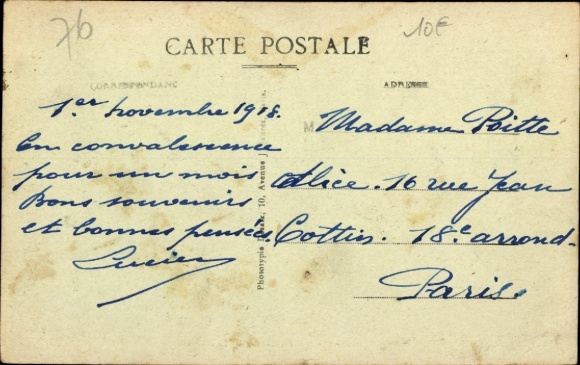 76
10€
CARTE POSTALE
CORRESPONDANC
ADRESSE
1.er novembre 1918.
En convalescence
pour un mois
Bons souvenirs
et bonnes pensées
Lucien
M
Madame Poitte
Alice. 16 rue Jean
Cottin. 18.e arrond.
Paris.
Phototypie 10, Avenue